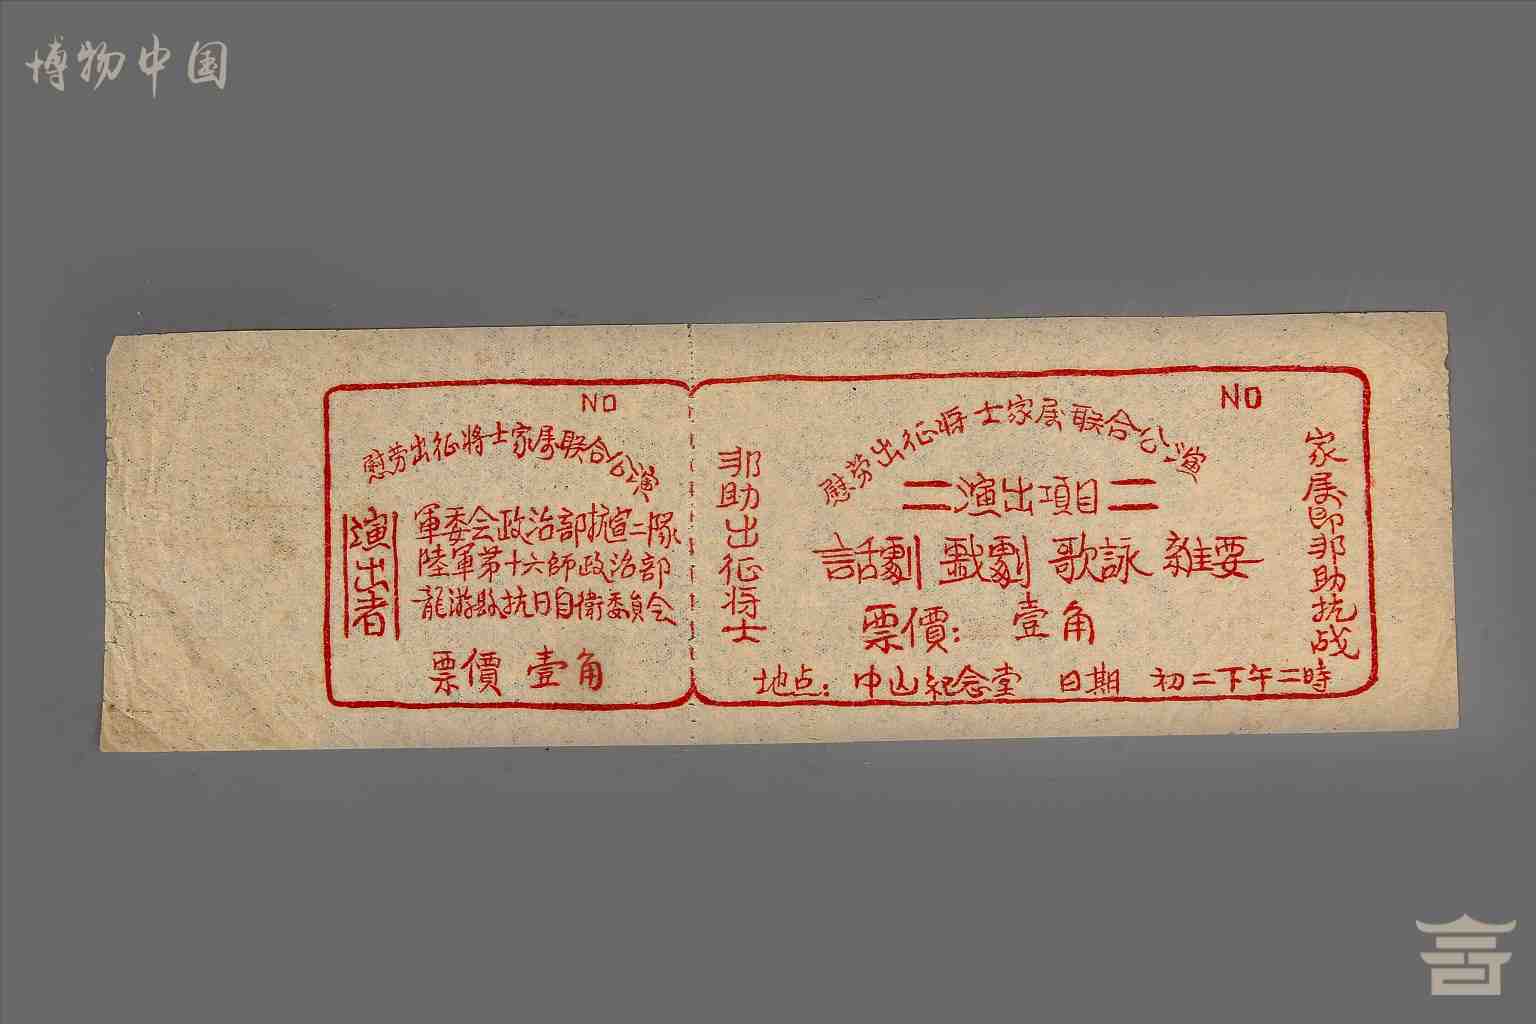 博物中国
NO
慰劳出征将士家属联合公演
演出者
軍委会政治部抗宣二隊
陸軍第十六師政治部
龍游縣抗日自衛委員会
票價 壹角
NO
慰劳出征将士家属联合公演
二演出項目二
話劇 戲劇 歌詠 雜耍
票價：壹角
地点：中山紀念堂 日期 初二下午二時
邦助出征将士
家属即邦助抗战